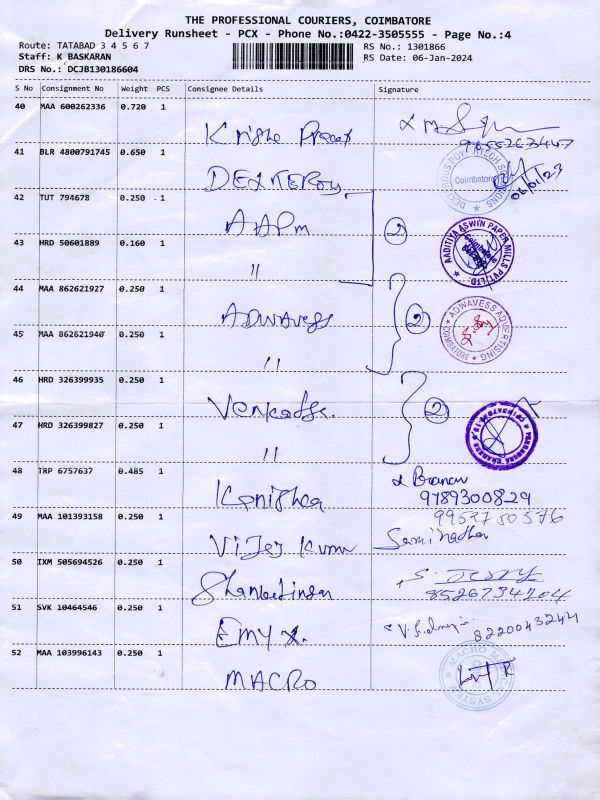 THE PROFESSIONAL COURIERS, COIMBATORE
Delivery Runsheet - PCX - Phone No.:0422-3505555 - Page No.:4
Route: TATABAD 3 4 5 6 7
RS No.: 1301866
Staff: K BASKARAN
RS Date: 06-Jan-2024
DRS No.: DCJB130186604
S No Consignment No Weight PCS Consignee Details Signature
40 MAA 600262336 0.720 1
41 BLR 4800791745 0.650 1
Coimbatore
06/01/23
42 TUT 794678 0.250 1 AAPM 2
43 HRD 50601889 0.160 1 "
AADITIYA ASWIN PAPER MILLS PVT LTD.
44 MAA 862621927 0.250 1 ADWAVESS 2
ADWAVESS ADVERTISING
COIMBATORE
45 MAA 862621940 0.250 1 "
46 HRD 326399935 0.250 1 2
47 HRD 326399827 0.250 1 "
48 TRP 6757637 0.485 1 Kanishka
9789300829
49 MAA 101393158 0.250 1 Vijey Kumar
9952750576
50 IXM 505694526 0.250 1
8526734204
51 SVK 10464546 0.250 1
8220043244
52 MAA 103996143 0.250 1 MACRO